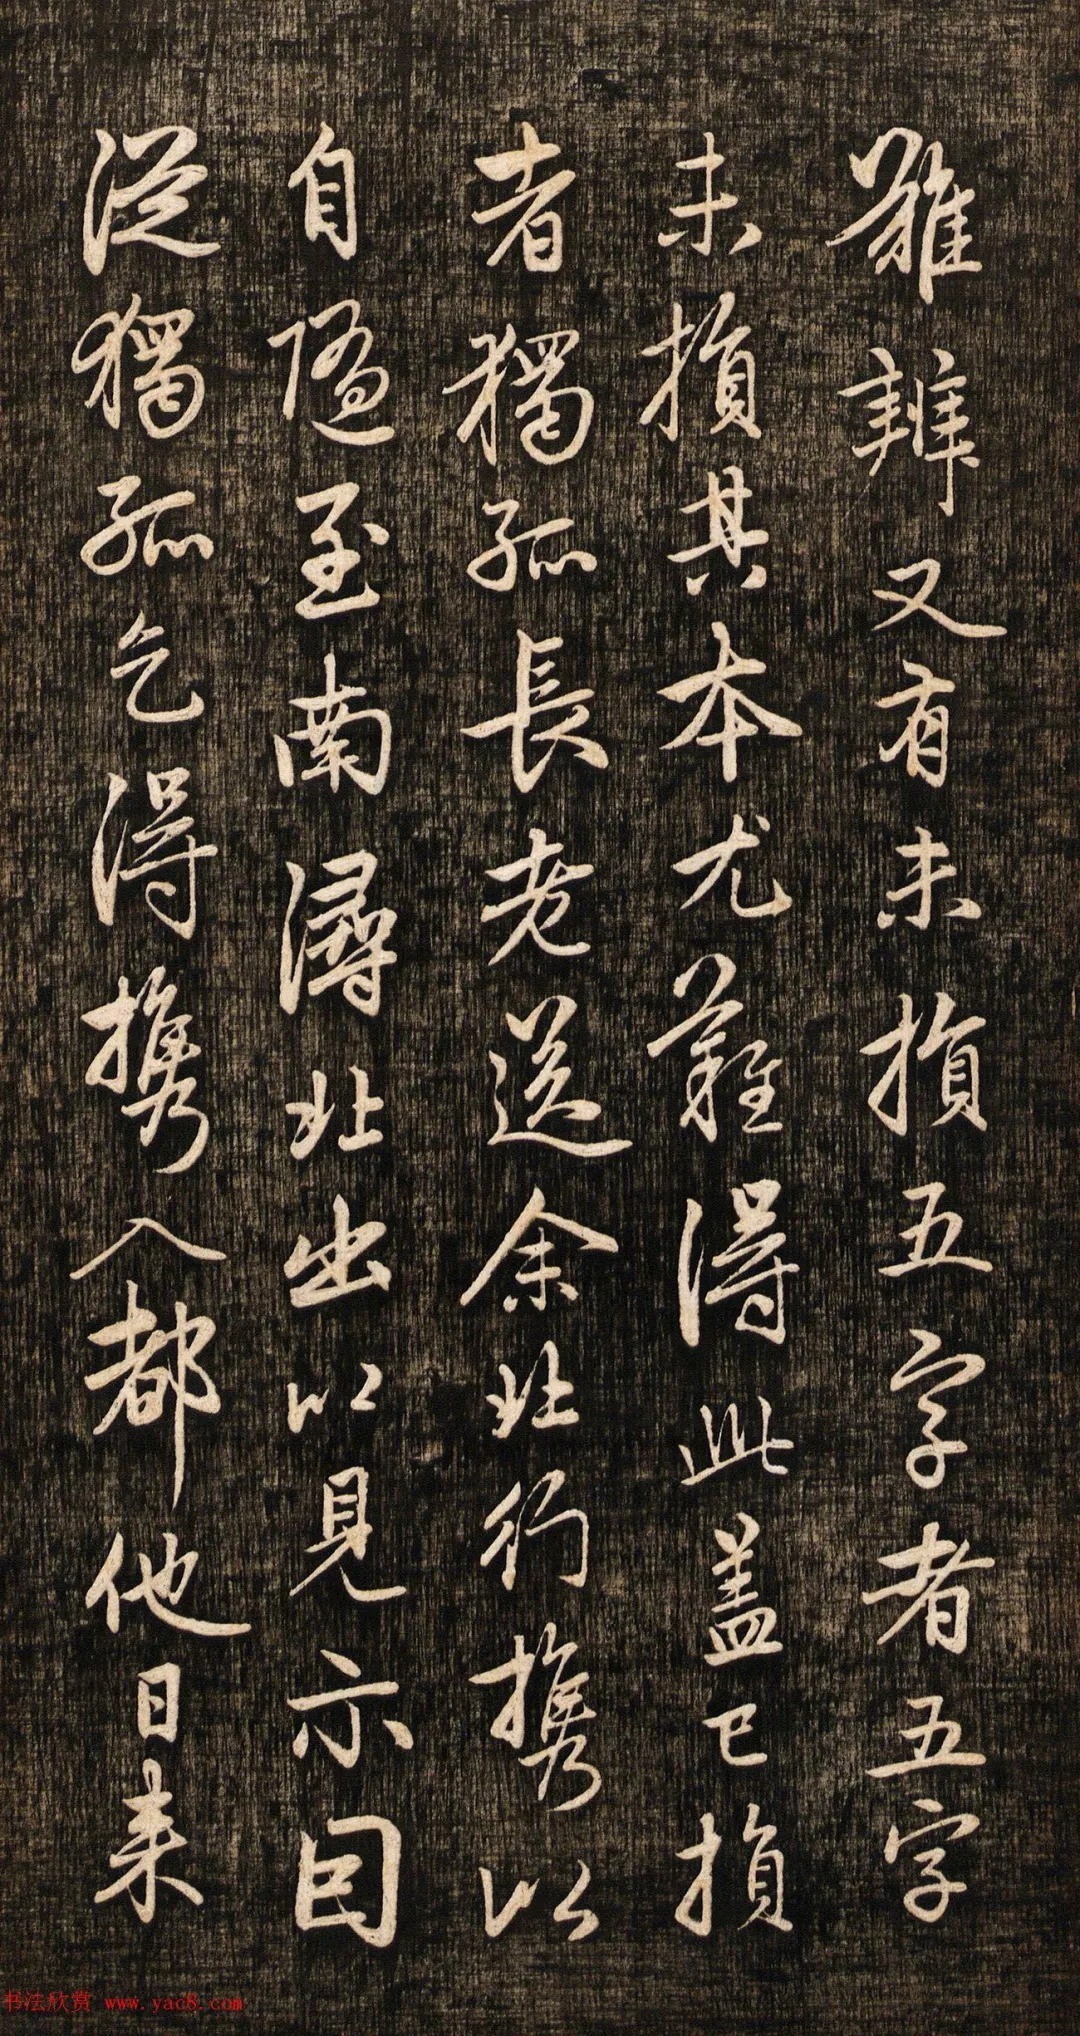 難辨又有未損五字者五字
未損其本尤難得此盖已損
者獨孤長老送余北行携以
自隨至南潯北出以見示因
從獨孤乞得携入都他日来
书法欣赏 www.yac8.com